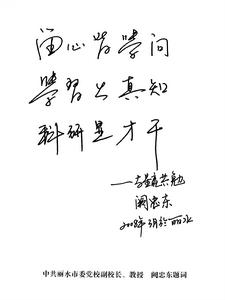 留心皆学问
学习出真知
科研是才干
共勉
阙忠东
2008年3月于丽水
中共丽水市委党校副校长、教授 阙忠东题词